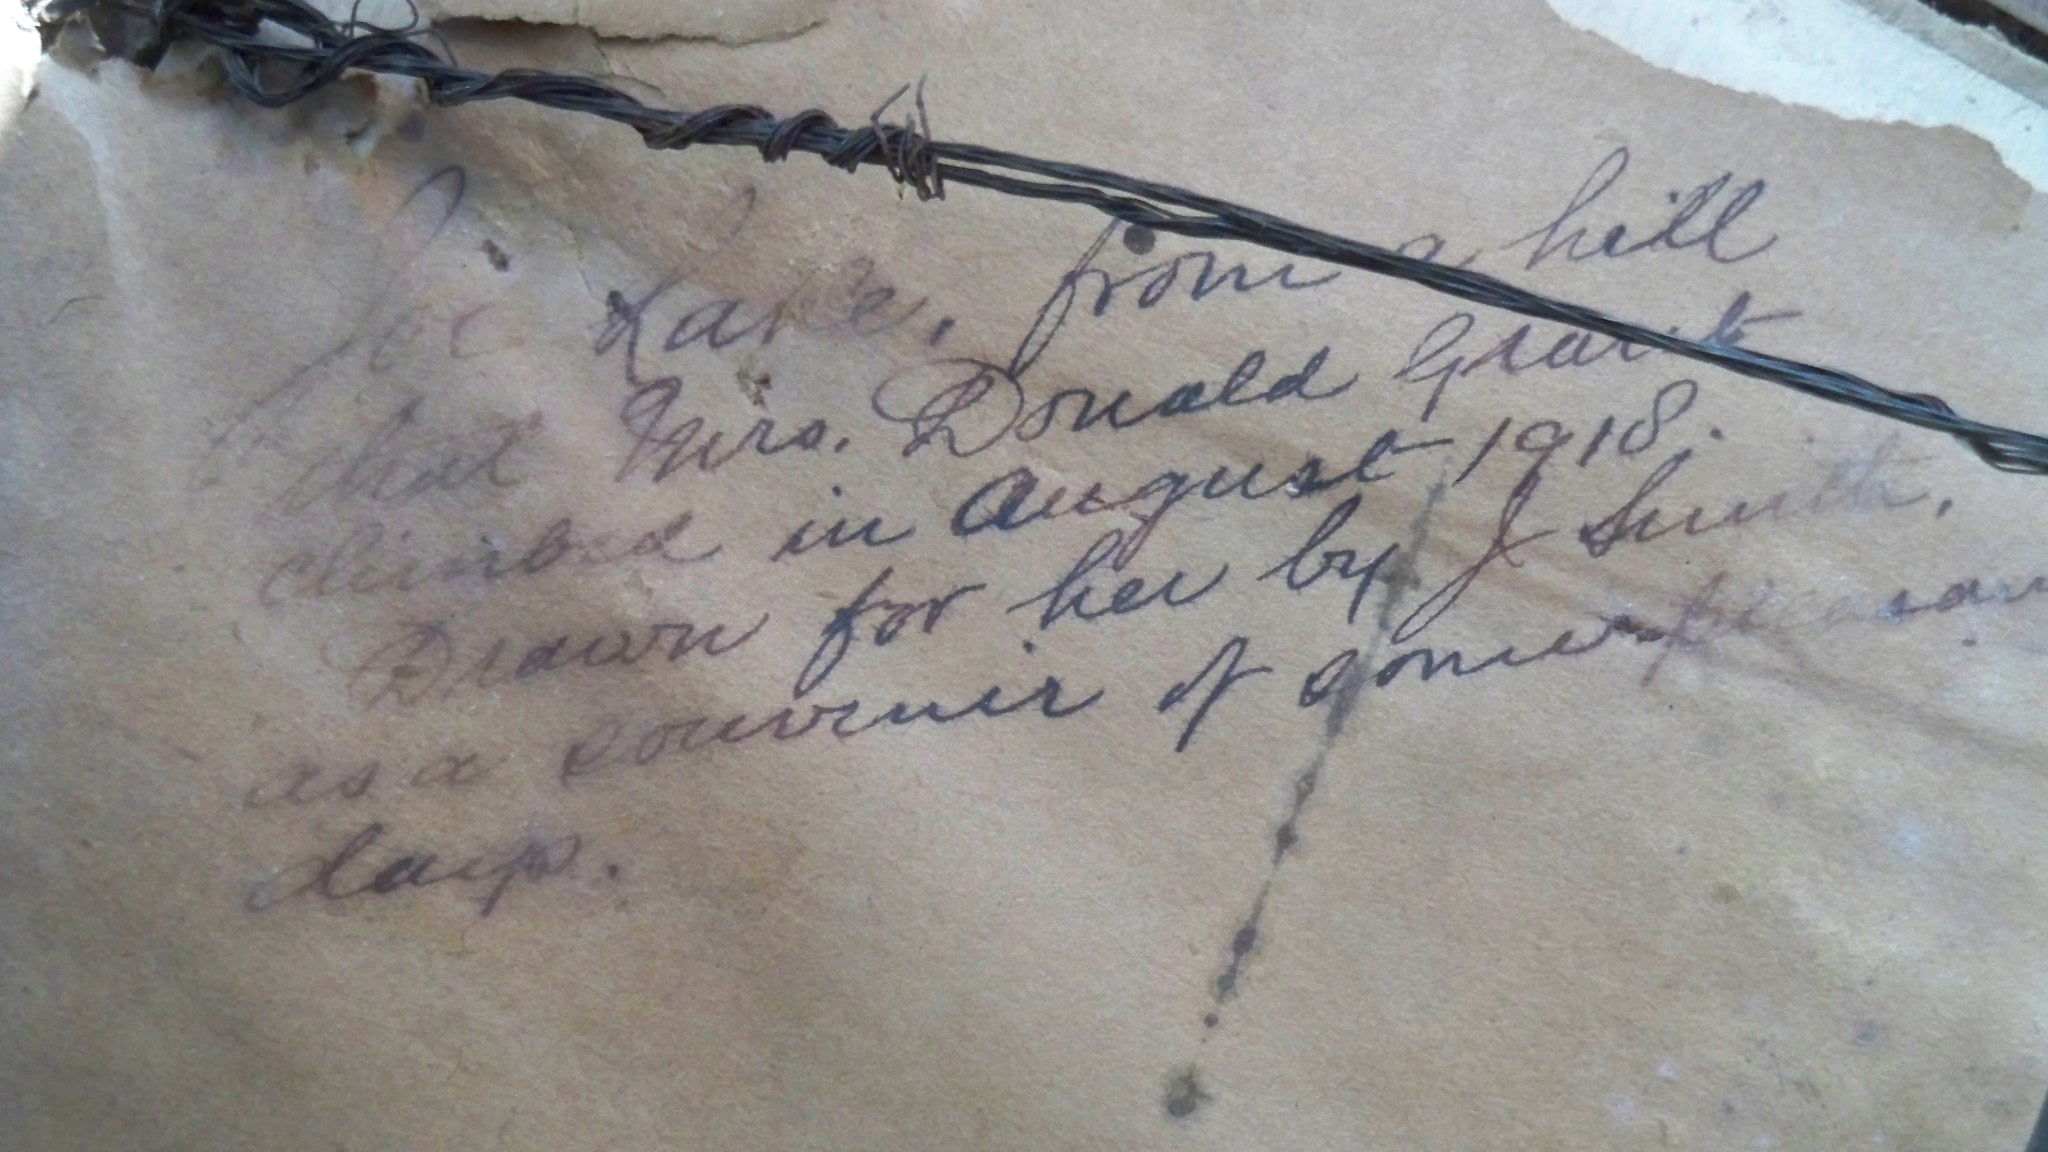 Joe Lake, from a hill
that Mrs. Donald Grant
climbed in August 1918.
Drawn for her by J Smith,
as a souvenir of some pleasan
days.